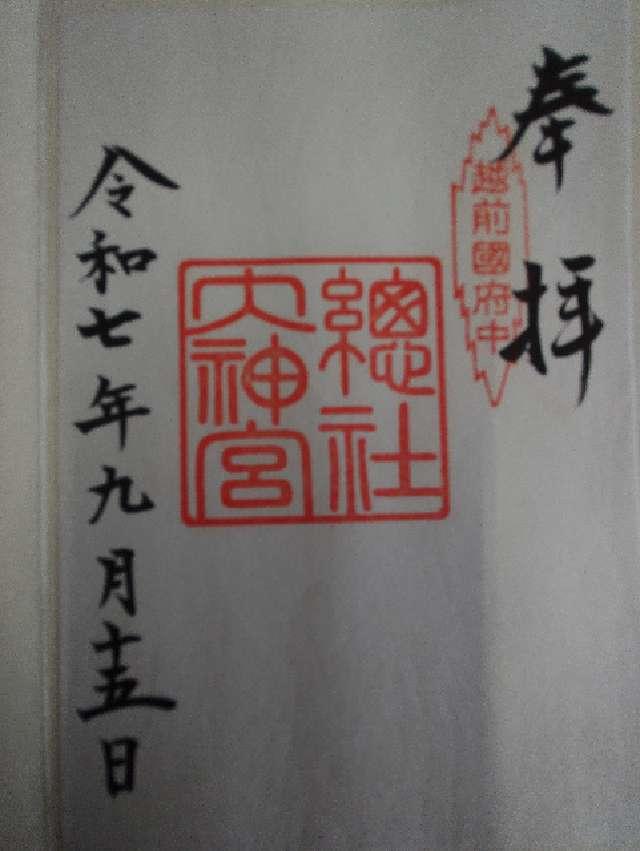 奉拝
越前國府中
總社
大神宮
令和七年九月十五日